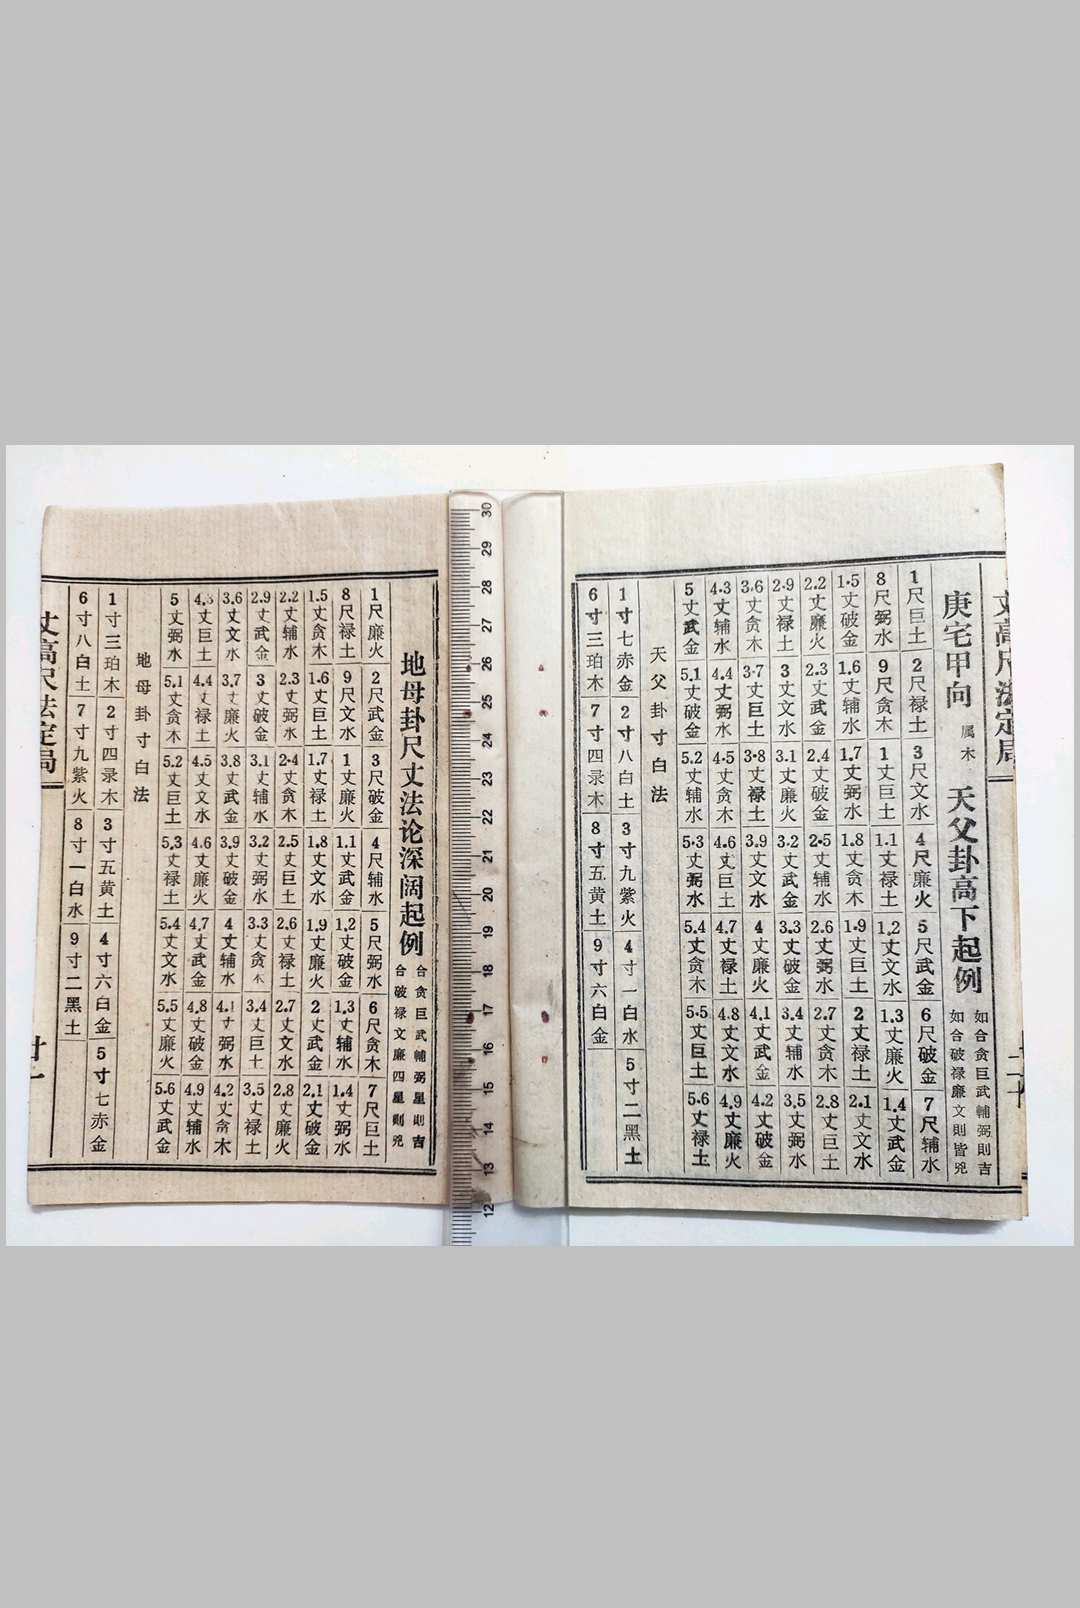 丈高尺法定局
庚宅甲向 属木 天父卦高下起例 如合贪巨武輔弼則吉 如合破禄廉文則皆兇
1尺巨土 2尺禄土 3尺文水 4尺廉火 5尺武金 6尺破金 7尺辅水
8尺弼水 9尺贪木 1丈巨土 1.1丈禄土 1.2丈文水 1.3丈廉火 1.4丈武金
1.5丈破金 1.6丈辅水 1.7丈弼水 1.8丈贪木 1.9丈巨土 2丈禄土 2.1丈文水
2.2丈廉火 2.3丈武金 2.4丈破金 2.5丈辅水 2.6丈弼水 2.7丈贪木 2.8丈巨土
2.9丈禄土 3丈文水 3.1丈廉火 3.2丈武金 3.3丈破金 3.4丈辅水 3.5丈弼水
3.6丈贪木 3.7丈巨土 3.8丈禄土 3.9丈文水 4丈廉火 4.1丈武金 4.2丈破金
4.3丈辅水 4.4丈弼水 4.5丈贪木 4.6丈巨土 4.7丈禄土 4.8丈文水 4.9丈廉火
5丈武金 5.1丈破金 5.2丈辅水 5.3丈弼水 5.4丈贪木 5.5丈巨土 5.6丈禄土
天父卦寸白法
1寸七赤金 2寸八白土 3寸九紫火 4寸一白水 5寸二黑土
6寸三珀木 7寸四录木 8寸五黄土 9寸六白金
30 29 28 27 26 25 24 23 22 21 20 19 18 17 16 15 14 13 12
地母卦尺丈法论深阔起例 合贪巨武輔弼星則吉 合破禄文廉四星則兇
1尺廉火 2尺武金 3尺破金 4尺辅水 5尺弼水 6尺贪木 7尺巨土
8尺禄土 9尺文水 1丈廉火 1.1丈武金 1.2丈破金 1.3丈辅水 1.4丈弼水
1.5丈贪木 1.6丈巨土 1.7丈禄土 1.8丈文水 1.9丈廉火 2丈武金 2.1丈破金
2.2丈辅水 2.3丈弼水 2.4丈贪木 2.5丈巨土 2.6丈禄土 2.7丈文水 2.8丈廉火
2.9丈武金 3丈破金 3.1丈辅水 3.2丈弼水 3.3丈贪木 3.4丈巨土 3.5丈禄土
3.6丈文水 3.7丈廉火 3.8丈武金 3.9丈破金 4丈辅水 4.1丈弼水 4.2丈贪木
4.3丈巨土 4.4丈禄土 4.5丈文水 4.6丈廉火 4.7丈武金 4.8丈破金 4.9丈辅水
5丈弼水 5.1丈贪木 5.2丈巨土 5.3丈禄土 5.4丈文水 5.5丈廉火 5.6丈武金
地母卦寸白法
1寸三珀木 2寸四录木 3寸五黄土 4寸六白金 5寸七赤金
6寸八白土 7寸九紫火 8寸一白水 9寸二黑土
丈高尺法定局